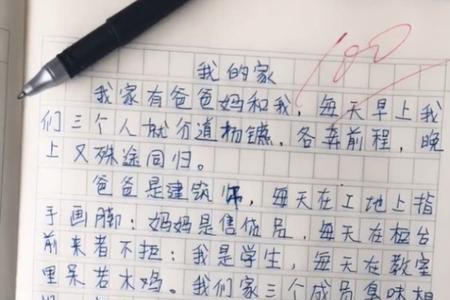 我的家
100
我家有爸爸妈和我，每天早上我
们三个人就分道扬镳，各奔前程，晚
上又殊途同归。
爸爸是建筑师，每天在工地上指
手画脚；妈妈是售货员，每天在柜台
前来者不拒；我是学生，每天在教室
里呆若木鸡。我们家三个成员臭味相